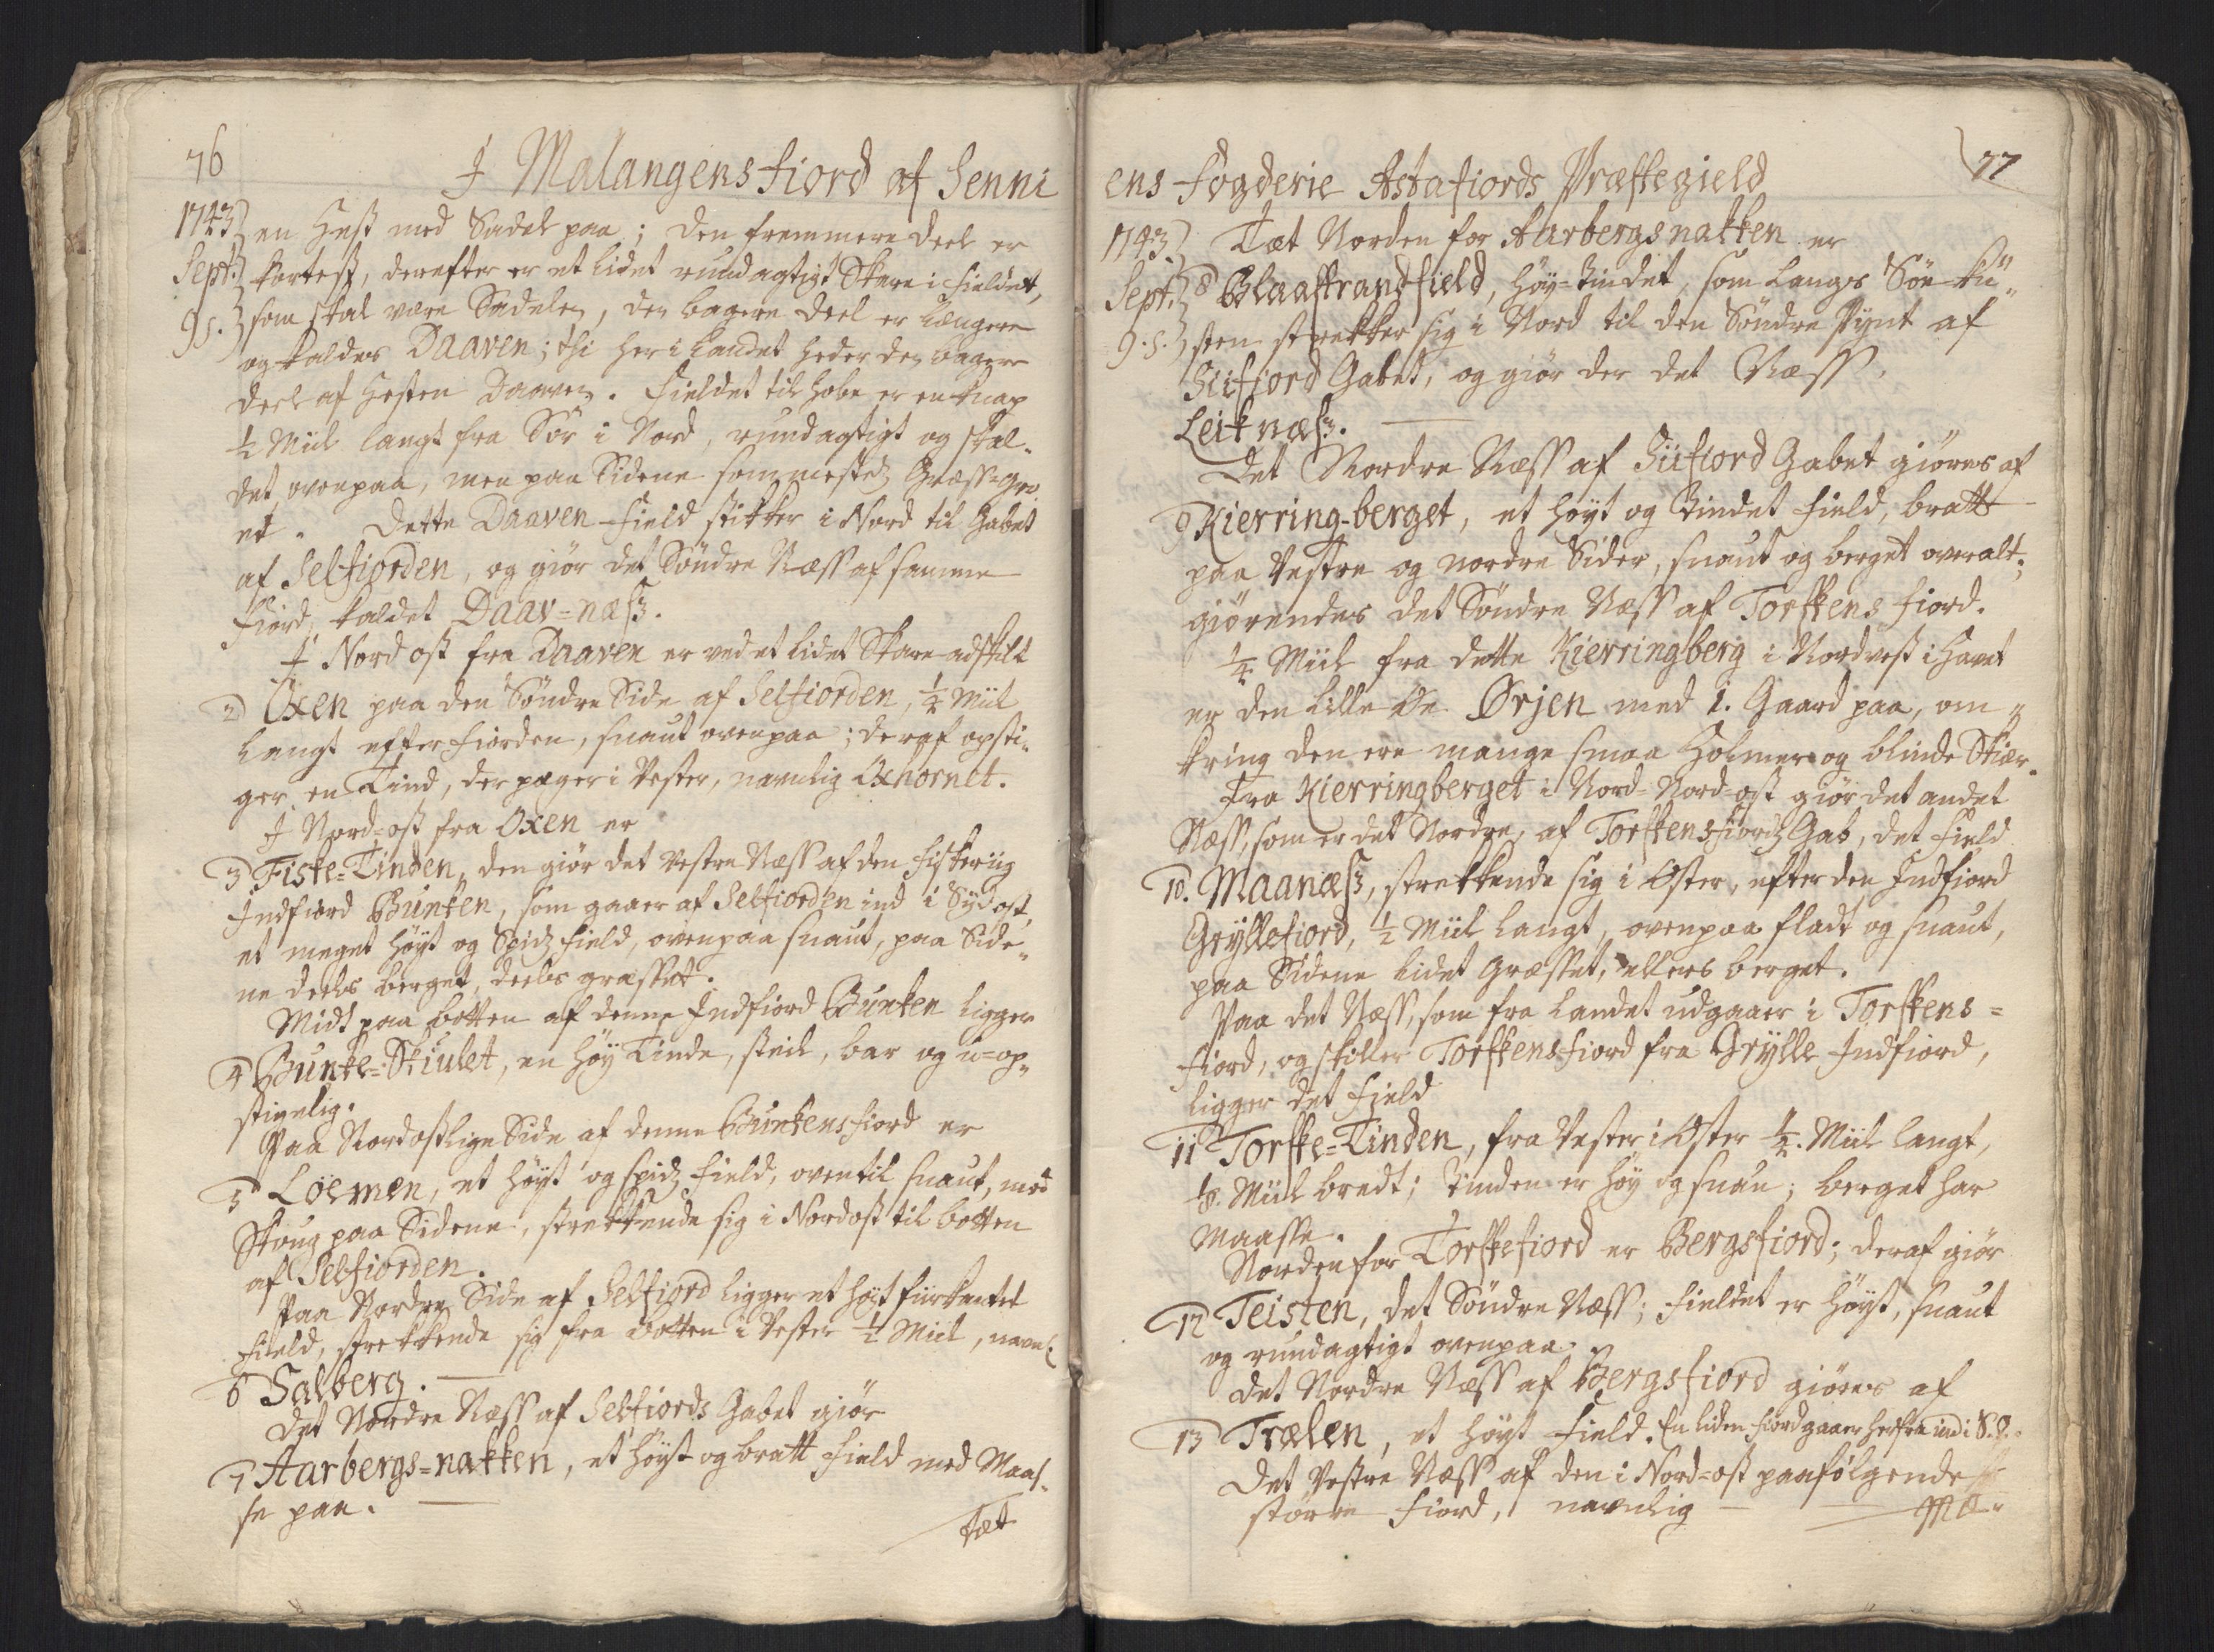 76
I Malangens fiord af Senni
1743 en Hest med Sadel paa; den fremmere deel er
Sept. kortest, derefter er et lidet rundagtigt Skare i fieldet,
9. s. som skal være Sadelen, den bagere deel er længere
og kaldes Daaven; thi her i Landet heder den bagere
deel af Hesten Daaven. Fieldet tilhobe er en knap
1/2 Miil langt fra Sør i Nord, rundagtigt og skal-
det ovenpaa, men paa Sidene sommestedz Græss-gro
et. Dette Daaven-field stikker i Nord til Gabet
af Selfiorden, og giør det Søndre Næss af samme
Fiord, kaldet Daav=næss.
I Nordost fra Daaven er ved et lidet Skare adskilt
2 Oxen paa den Søndre Side af Selfiorden, 1/4 Miil
Langt efter fiorden, snaut ovenpaa; deraf opsti-
ger en Tind, der pæger i Vester, navnlig Oxhornet.
I Nord-ost fra Oxen er
3 Fiske=Tinden, den giør det Vestre Næss af den fiskeriig
Indfiord Bunken, som gaaer af Selfiorden ind i Sydost,
et meget høyt og Spidz field, ovenpaa snaut, paa Side-
ne deels berget, deels græsset.
Midt paa botten af denne Indfiord Bunken ligger
4 Bunke=Skiulet, en høy Tinde, steil, bar og u-op-
stigelig.
Paa Nordostlige Side af denne Bunkens fiord er
5 Loemen, et høyt og spidz field, oventil snaut, med
Skoug paa Sidene, strekkende sig i Nordost til botten
af Selfiorden.
Paa Nordre Side af Selfiord ligger et høyt fiirkantet
field, strekkende sig fra botten i Vester 1/4 Miil, navnl.
6 Salberg.
Det Nordre Næss af Selfiords Gabet giør
7 Aarbergs=nakken, et høyt og bratt field med Maas-
se paa.
Tæt
77
ens Fogderie Astafiords Præstegield
1743. Tæt Norden for Aarbergsnakken er
Sept. 8 Blaastrandfield, høy-tindet, som langs Søe-kü-
9. s. sten strekker sig i Nord til den Søndre Pynt af
Siifiord Gabet, og giør der det Næss,
Leiknæss.
Det Nordre Næss af Siifiord Gabet giøres af
9 Kierring-berget, et høyt og tindet field, bratt
paa Vestre og nordre Sider, snaut og berget overalt;
giørendes det Søndre Næss af Torskens fiord.
1/4 Miil fra dette Kierringberg i Nordvest i Havet
er den lille Øe Ørjen med 1. Gaard paa, om-
kring den ere mange smaa Holmer og blinde Skiær.
Fra Kierringberget i Nord-Nord-ost giør det andet
Næss, som er det Nordre, af Torskensfiordz Gab, det field
10. Maanæss, strekkende sig i Øster, efter den Indfiord
Gryllefiord, 1/2 Miil langt, ovenpaa fladt og snaut,
paa Sidene lidet græsset, ellers berget.
Paa det Næss, som fra Landet udgaaer i Torskens=
fiord, og skiller Torskensfiord fra Grylle Indfiord,
ligger det field
11 Torske=Tinden, fra Vester i Øster 1/4. Miil langt,
1/8. Miil bredt; tinden er høy og snau; berget har
Maasse.
Norden for Torskefiord er Bergsfiord; deraf giør
12 Teisten, det Søndre Næss; fieldet er høyt, snaut
og rundagtigt ovenpaa.
Det Nordre Næss af Bergsfiord giøres af
13 Trælen, et høyt field. En liden fiord gaaer herfra ind i S.O.
Det Vestre Næss af den i Nord-ost paafølgende
større fiord, navnlig
Mæ-